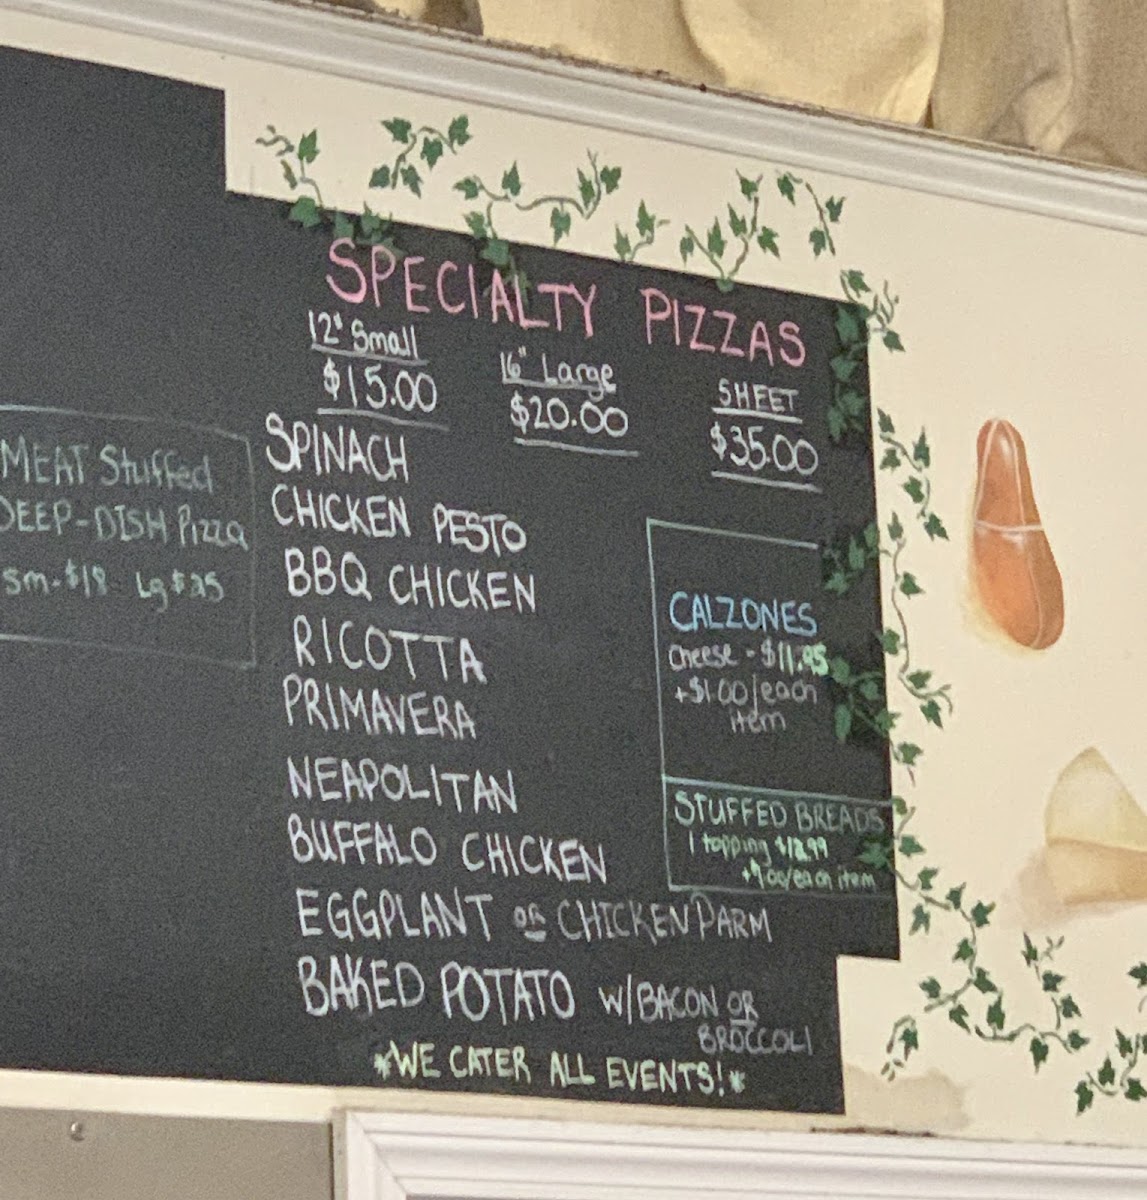 SPECIALTY PIZZAS
12" Small
$15.00
16" Large
$20.00
SHEET
$35.00
SPINACH
CHICKEN PESTO
BBQ CHICKEN
RICOTTA
PRIMAVERA
NEAPOLITAN
BUFFALO CHICKEN
EGGPLANT OR CHICKEN PARM
BAKED POTATO W/BACON OR
BROCCOLI
*WE CATER ALL EVENTS!*
MEAT Stuffed
DEEP-DISH Pizza
Sm-$18 Lg $25
CALZONES
Cheese - $11.95
+$1.00/each
item
STUFFED BREADS
1 topping $12.99
+$1.00/each item